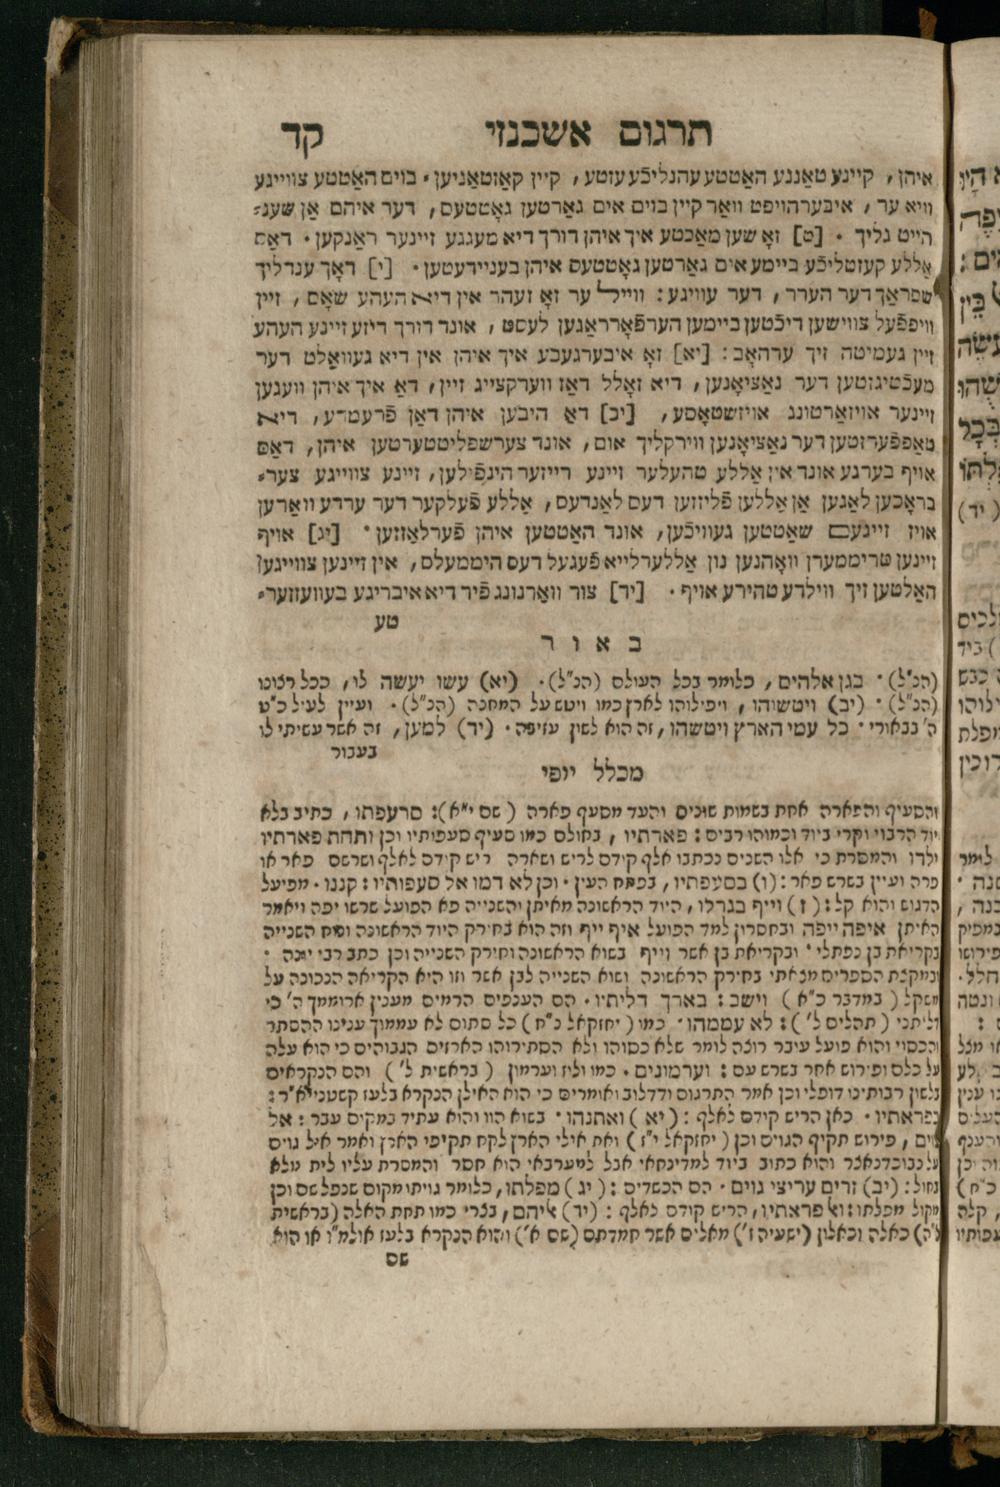 תרגום אשכנזי קד
איהן, קיינע טאַננע האַטטע עהנליכֿע עזטע, קיין קאַזטאַניען · בוים האַטטע צווייגע
וויא ער, איבערהויפט וואַר קיין בוים אים גאַרטען גאָטטעס, דער איהם אַן שענ־
הייט גליך · [ט] זאָ שען מאַכטע איך איהן דורך דיא מעגגע זיינער ראַנקען · דאַס
אַללע קעזטליכֿע ביימע אים גאַרטען גאָטטעס איהן בענייידעטען · [י] דאָך ענדליך
שפראַך דער הערר, דער עוויגע: ווייל ער זאָ זעהר אין דיא העהע שאָס, זיין
וויפפֿעל צווישען דיכֿטען ביימען הערפֿאָרראַגען לעסט, אונד דורך דיזע זיינע העהע
זיין געמיטה זיך ערהאָב: [יא] זאָ איבערגעבע איך איהן אין דיא געוואַלט דער
מעכֿטיגזטען דער נאַציאָנען, דיא זאָלל דאַז ווערקצייג זיין, דאַ איך איהן וועגען
זיינער אויזאַרטונג אויזשטאָסע, [יב] דאַ היבען איהן דאַן פֿרעמדע, דיא
טאַפפֿערזטען דער נאַציאָנען ווירקליך אום, אונד צערשפליטטערטען איהן, דאַס
אויף בערגע אונד אין אַללע טהעלער זיינע רייזער הינפֿילען, זיינע צווייגע צער־
בראָכֿען לאַגען אַן אַללען פֿליזזען דעם לאַנדעס, אַללע פֿעלקער דער ערדע וואַרען
אויז זיינעם שאַטטען געוויכֿען, אונד האַטטען איהן פֿערלאַזזען · [יג] אויף
זיינען טריממערן וואָהנען נון אַללערלייא פֿעגעל דעס היממעלס, אין זיינען צווייגען
האַלטען זיך ווילדע טהירע אויף · [יד] צור וואַרנונג פֿיר דיא איבריגע בעוועזזער־
טע
באור
(הנ"ל) · בגן אלהים, כלומר בכל העולם (הנ"ל) · (יא) עשו יעשה לו, ככל רצונו
(הנ"ל) · (יב) ויטשוהו, ויפילוהו לארץ כמו ויטש על המחנה (הנ"ל) · ועיין לעיל כ"ט
ה' בבאורי · כל עמי הארץ ויטשהו, זה הוא לשון עזיבה · (יד) למען, זה אשר עשיתי לו
בעבור
מכלל יופי
והסעיף והפארה אחת בשמות שונים והעד מסעף פארה (שם י"א): סרעפתו, כתיב בלא
יוד הרבוי וקרי ביוד וכמוהו רבים: פארתיו, בחולם כמו סעיף סעפותיו וכן ותחת פארתיו
ילדו והמסרת כי אלו השנים נכתבו אלף קידם לריש ושארה ריש קידם לאלף ושרשם פאר או
פרה ועיין בשרש פאר: (ו) בסעפתיו, בפתח העין · וכן לא דמו אל סעפותיו: קננו · מפיעל
הדגוש והוא קל: (ז) וייף בגדלו, היוד הראשונה מאיתן והשנייה פא הפועל שרשו יפה ויאמר
האיתן איפה ייפה ובחסרון למד הפועל איף ייף וזה הוא בחירק היוד הראשונה ופתח השנייה
בקריאת בן נפתלי · ובקריאת בן אשר וייף בשוא הראשונה וחירק השנייה וכן כתב רבי יונה ·
ובמקצת הספרים מצאתי בחירק הראשונה ושוא השנייה לבן אשר וזו היא הקריאה הנכונה על
משקל (במדבר כ"א) וישב: בארך דליתיו · הם הענפים הרמים מענין ארוממך ה' כי
דליתני (תהלים ל'): לא עממהו · כמו (יחזקאל כ"ח) כל סתום לא עממוך ענינו ההסתר
והכסוי והוא פועל עובר רוצה לומר שלא כסוהו ולא הסתירוהו הארזים הגבוהים כי הוא עלה
על כלם ופירוש אחר בשרש עמם: וערמונים · כמו ולוז וערמון (בראשית ל') והם הנקראים
בלשון רבותינו דופלי וכן אמר התרגום ודדלוב ואומרים כי הוא האילן הנקרא בלעז קשטנייא"ר:
כפראתיו · כאן הריש קידם לאלף: (יא) ואתנהו · בשוא הוו והוא עתיד במקום עבר: אל
גוים, פירוש תקיף הגוים וכן (יחזקאל י"ז) ואת אילי הארץ לקח תקיפי הארץ ואמר איל גוים
על נבוכדנאצר והוא כתוב ביוד למדינחאי אבל למערבאי הוא חסר והמסרת עליו לית מלא
נחול: (יב) זרים עריצי גוים · הם הכשדים: (יג) מפלתו, כלומר גויתו מקום שנפל שם וכן
מקול מפלתו: ואל פראתיו, הריש קודם לאלף: (יד) אליהם, בצרי כמו תחת האלה (בראשית
ל"ה) כאלה וכאלון (ישעיה ו') מאלים אשר חמדתם (שם א') והוא הנקרא בלעז אולמ"ו או הוא
שם